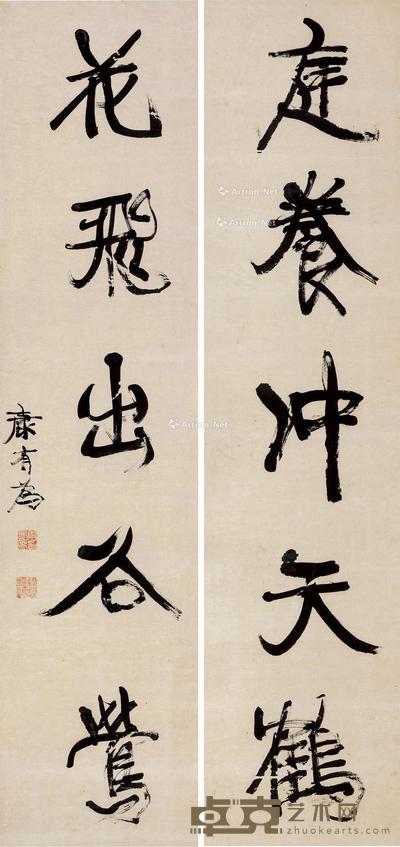 庭養冲天鶴
花飛出谷鶯
康有為
Artron.Net
Artron.Net
Artron.Net
卓克艺术网
zhuokearts.com